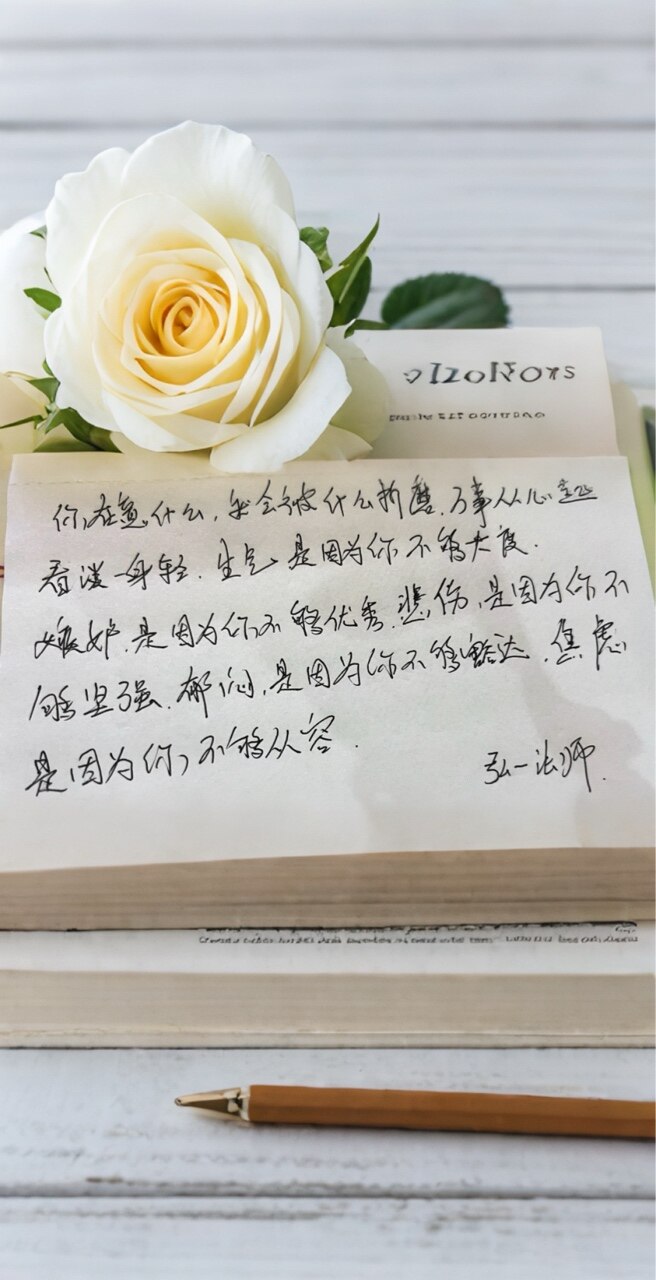 你在意什么,就会被什么折磨.万事从心起
看淡一身轻.生气是因为你不够大度.
嫉妒.是因为你不够优秀.悲伤.是因为你不
够坚强.郁闷,是因为你不够豁达.焦虑
是因为你,不够从容.
弘一法师.